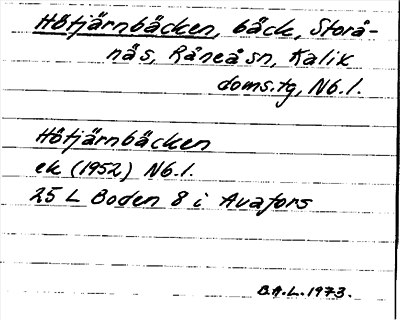 Hötjärnbäcken, bäck, Storå-
näs, Råneå sn, Kalix
doms.tg, Nb.l.
Hötjärnbäcken
ek (1952) Nb.l.
25 L Boden 8 i Avafors
B.A.L. 1973.